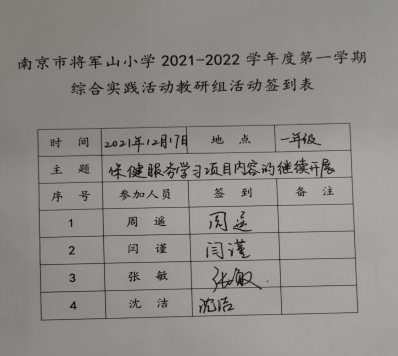 南京市将军山小学2021-2022学年度第一学期
综合实践活动教研组活动签到表
时 间 2021年12月17日 地 点 一年级
主 题 保健服务学习项目内容的继续开展
序 号 参加人员 签 到 备 注
1 周 遥 周遥
2 闫 谨 闫谨
3 张 敏 张敏
4 沈 洁 沈洁